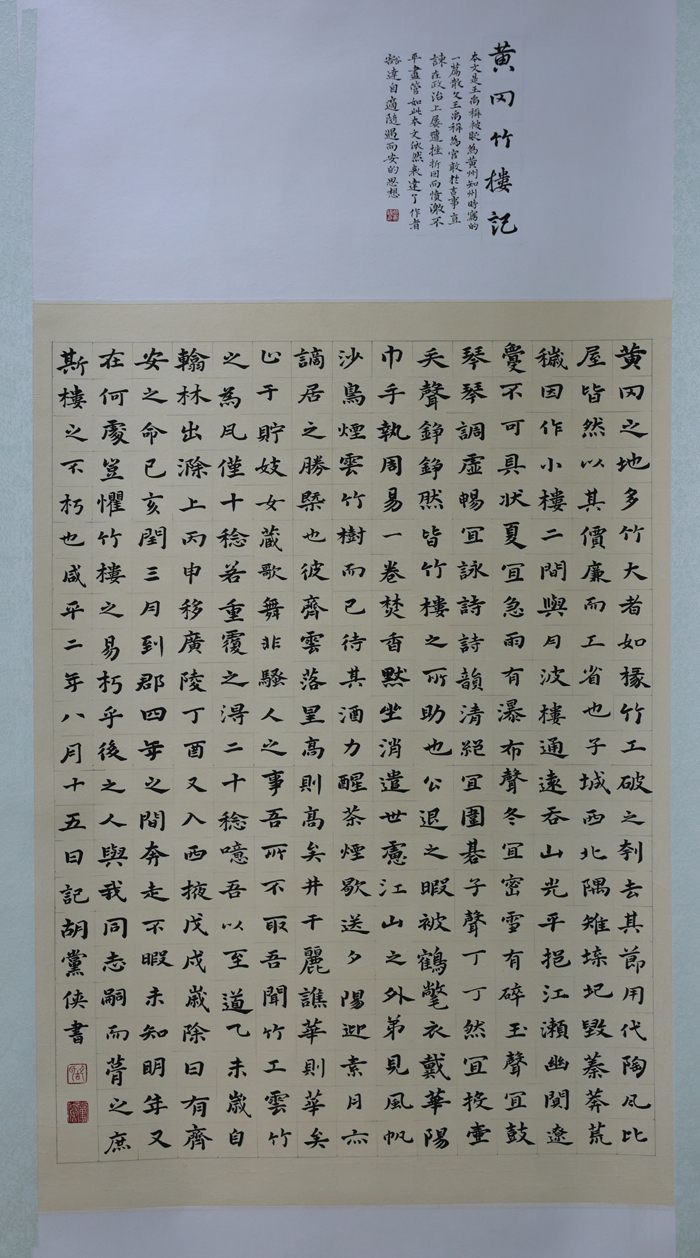 黄冈竹樓記
本文是王禹稱被貶為黄州知州時寫的
一篇散文王禹稱為官敢於言事直
諫在政治上屡遭挫折因而憤激不
平盡管如此本文依然表達了作者
豁達自適随遇而安的思想
黄冈之地多竹大者如椽竹工破之刳去其節用代陶瓦比
屋皆然以其價廉而工省也子城西北隅雉堞圮毀蓁莽荒
穢因作小樓二間與月波樓通遠吞山光平挹江瀨幽闃遼
敻不可具狀夏宜急雨有瀑布聲冬宜密雪有碎玉聲宜鼓
琴琴調虛暢宜詠詩詩韻清絕宜圍碁子聲丁丁然宜投壺
矢聲錚錚然皆竹樓之所助也公退之暇被鶴氅衣戴華陽
巾手執周易一卷焚香默坐消遣世慮江山之外第見風帆
沙鳥煙雲竹樹而已待其酒力醒茶煙歇送夕陽迎素月亦
謫居之勝槩也彼齊雲落星高則高矣井干麗譙華則華矣
止于貯妓女藏歌舞非騷人之事吾所不取吾聞竹工雲竹
之為瓦僅十稔若重覆之得二十稔噫吾以至道乙未歲自
翰林出滁上丙申移廣陵丁酉又入西掖戊戌歲除日有齊
安之命己亥閏三月到郡四年之間奔走不暇未知明年又
在何處豈懼竹樓之易朽乎後之人與我同志嗣而葺之庶
斯樓之不朽也咸平二年八月十五日記胡黨俠書